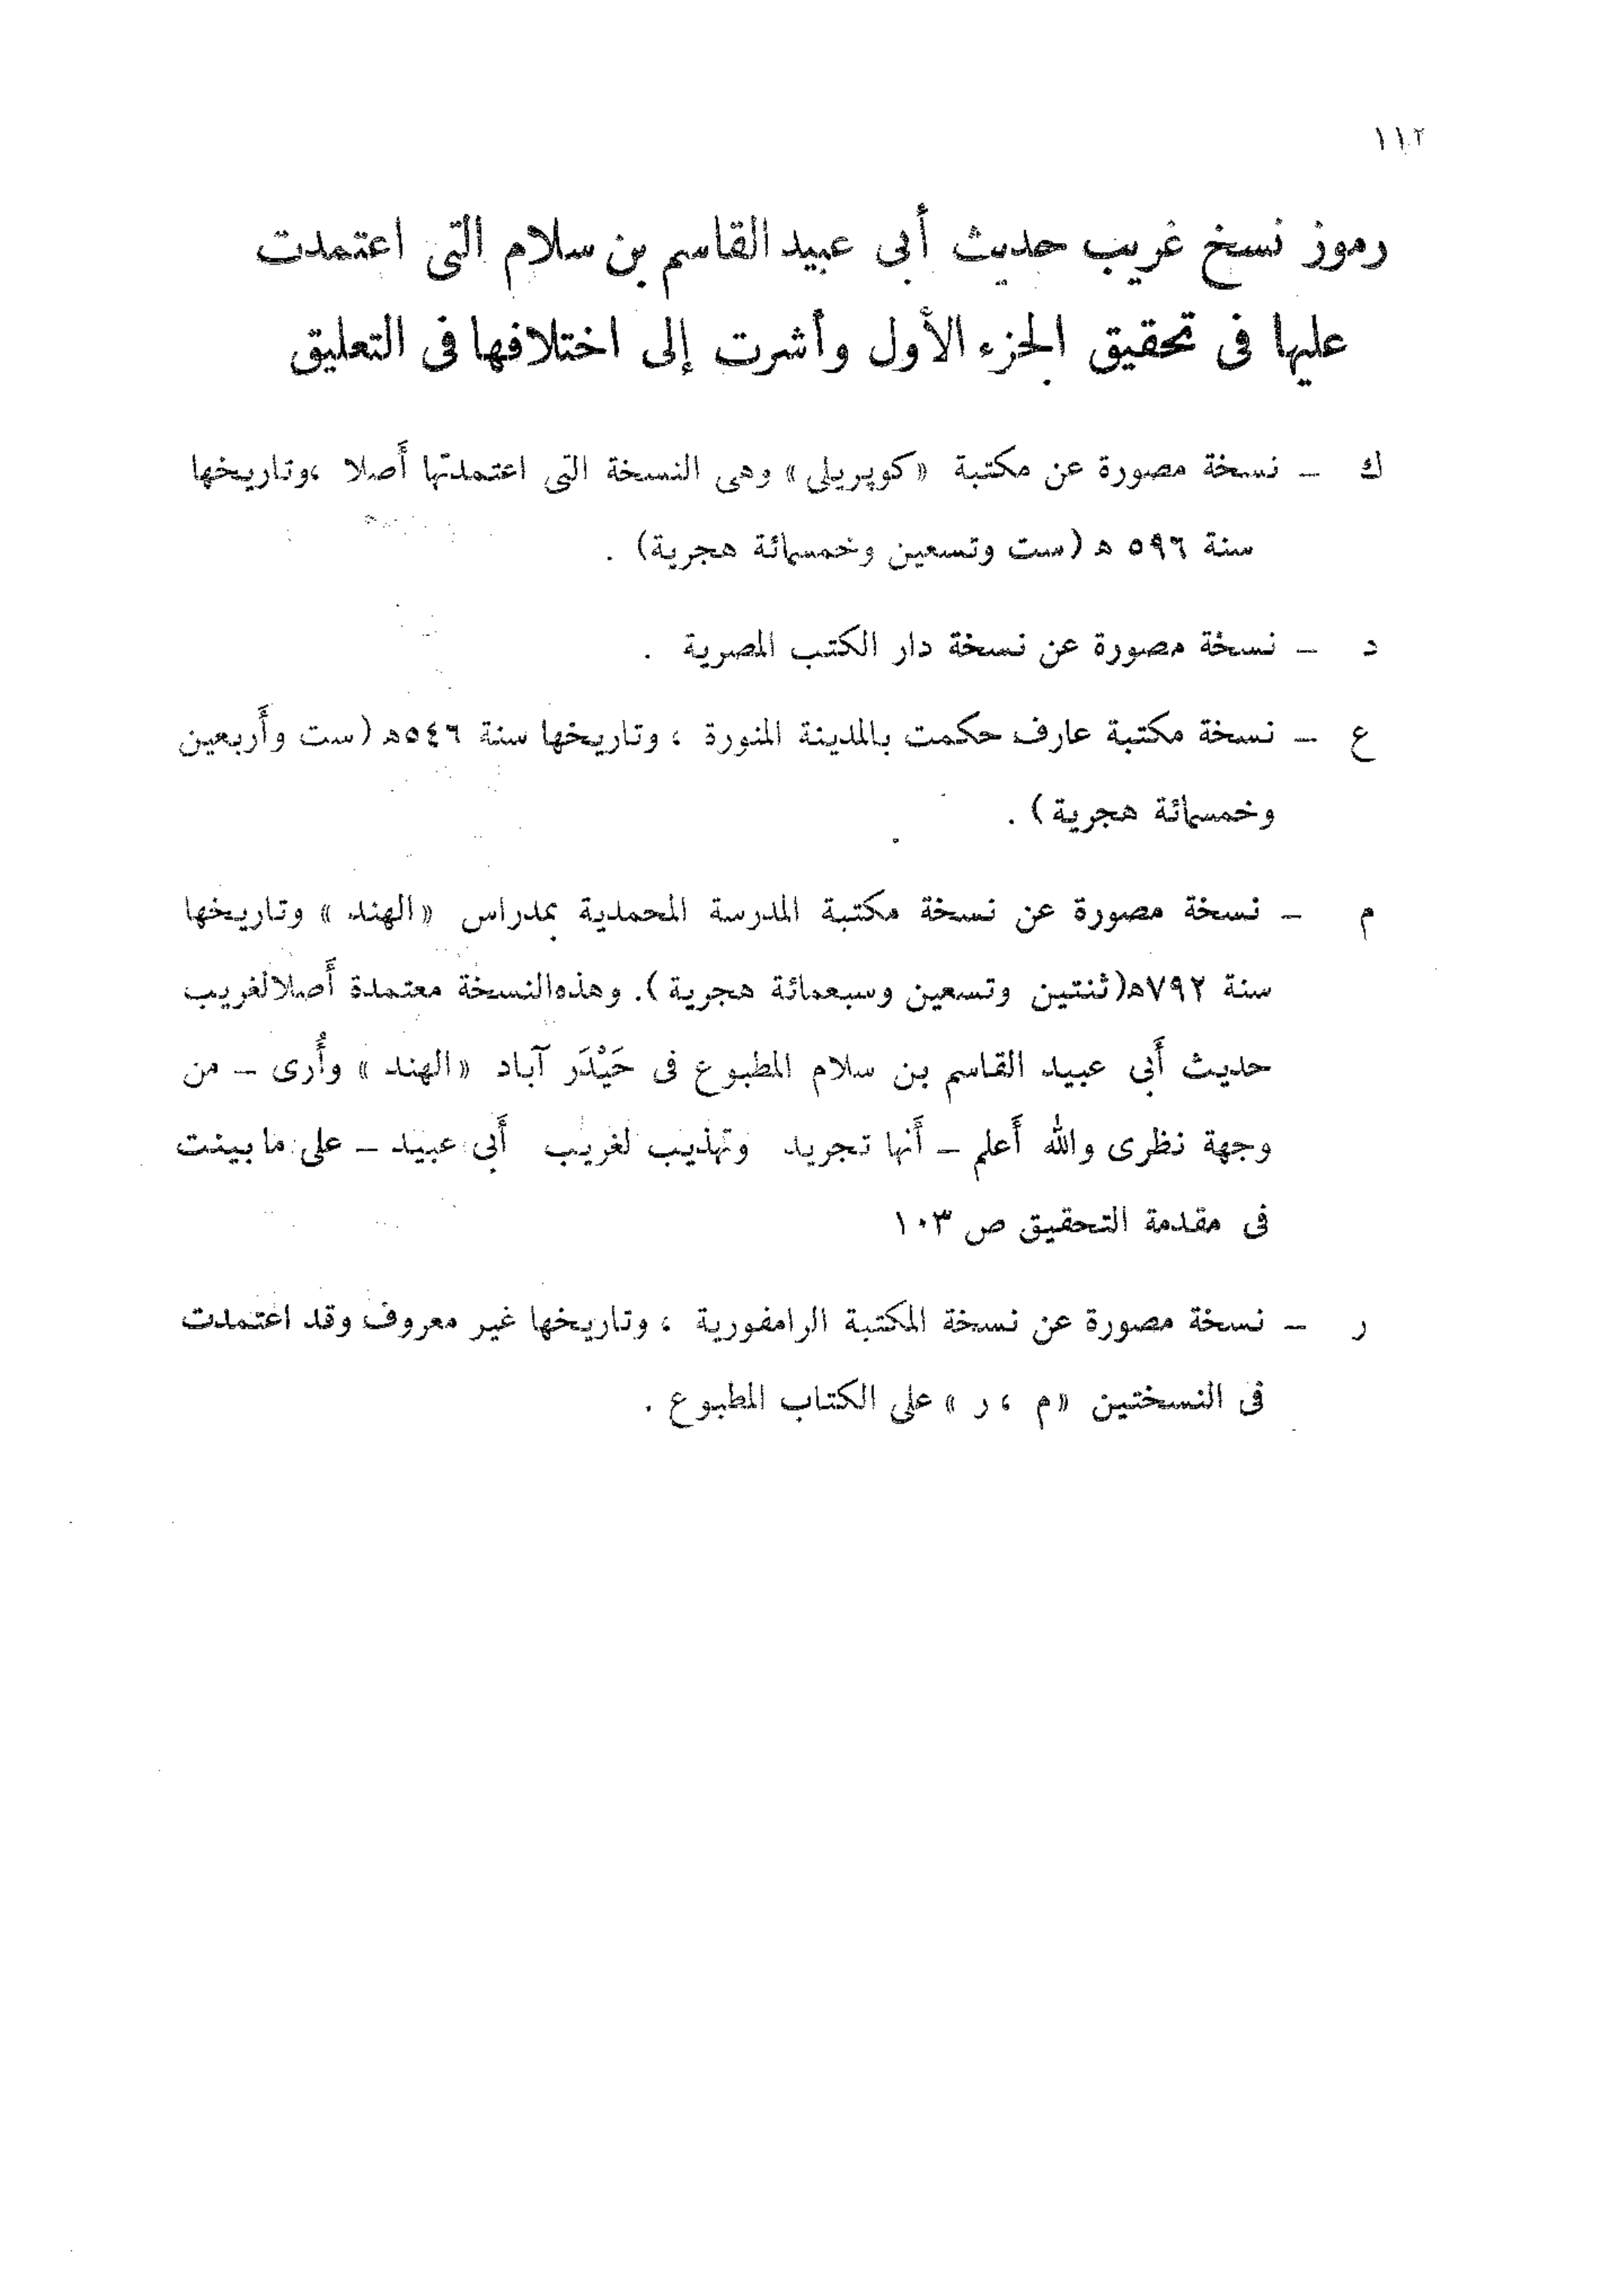 ١١٢
رموز نسخ غريب حديث أبى عبيد القاسم بن سلام التى اعتمدت
عليها فى تحقيق الجزء الأول وأشرت إلى اختلافها فى التعليق
ك – نسخة مصورة عن مكتبة «كوپريلى» وهى النسخة التى اعتمدتها أَصلا ،وتاريخها
سنة ٥٩٦ ه (ست وتسعين وخمسمائة هجرية) .
د – نسخة مصورة عن نسخة دار الكتب المصرية .
ع – نسخة مكتبة عارف حكمت بالمدينة المنورة ، وتاريخها سنة ٥٤٦ه (ست وأَربعين
وخمسمائة هجرية ) .
م – نسخة مصورة عن نسخة مكتبة المدرسة المحمدية بمدراس «الهند» وتاريخها
سنة ٧٩٢ه(ثنتين وتسعين وسبعمائة هجرية ). وهذه النسخة معتمدة أَصلا لغريب
حديث أَبى عبيد القاسم بن سلام المطبوع فى حَيْدَر آباد «الهند» وأُرى – من
وجهة نظرى والله أَعلم – أَنها تجريد وتهذيب لغريب أَبى عبيد – على ما بينت
فى مقدمة التحقيق ص ١٠٣
ر – نسخة مصورة عن نسخة المكتبة الرامفورية ، وتاريخها غير معروف وقد اعتمدت
فى النسختين «م ، ر» على الكتاب المطبوع .